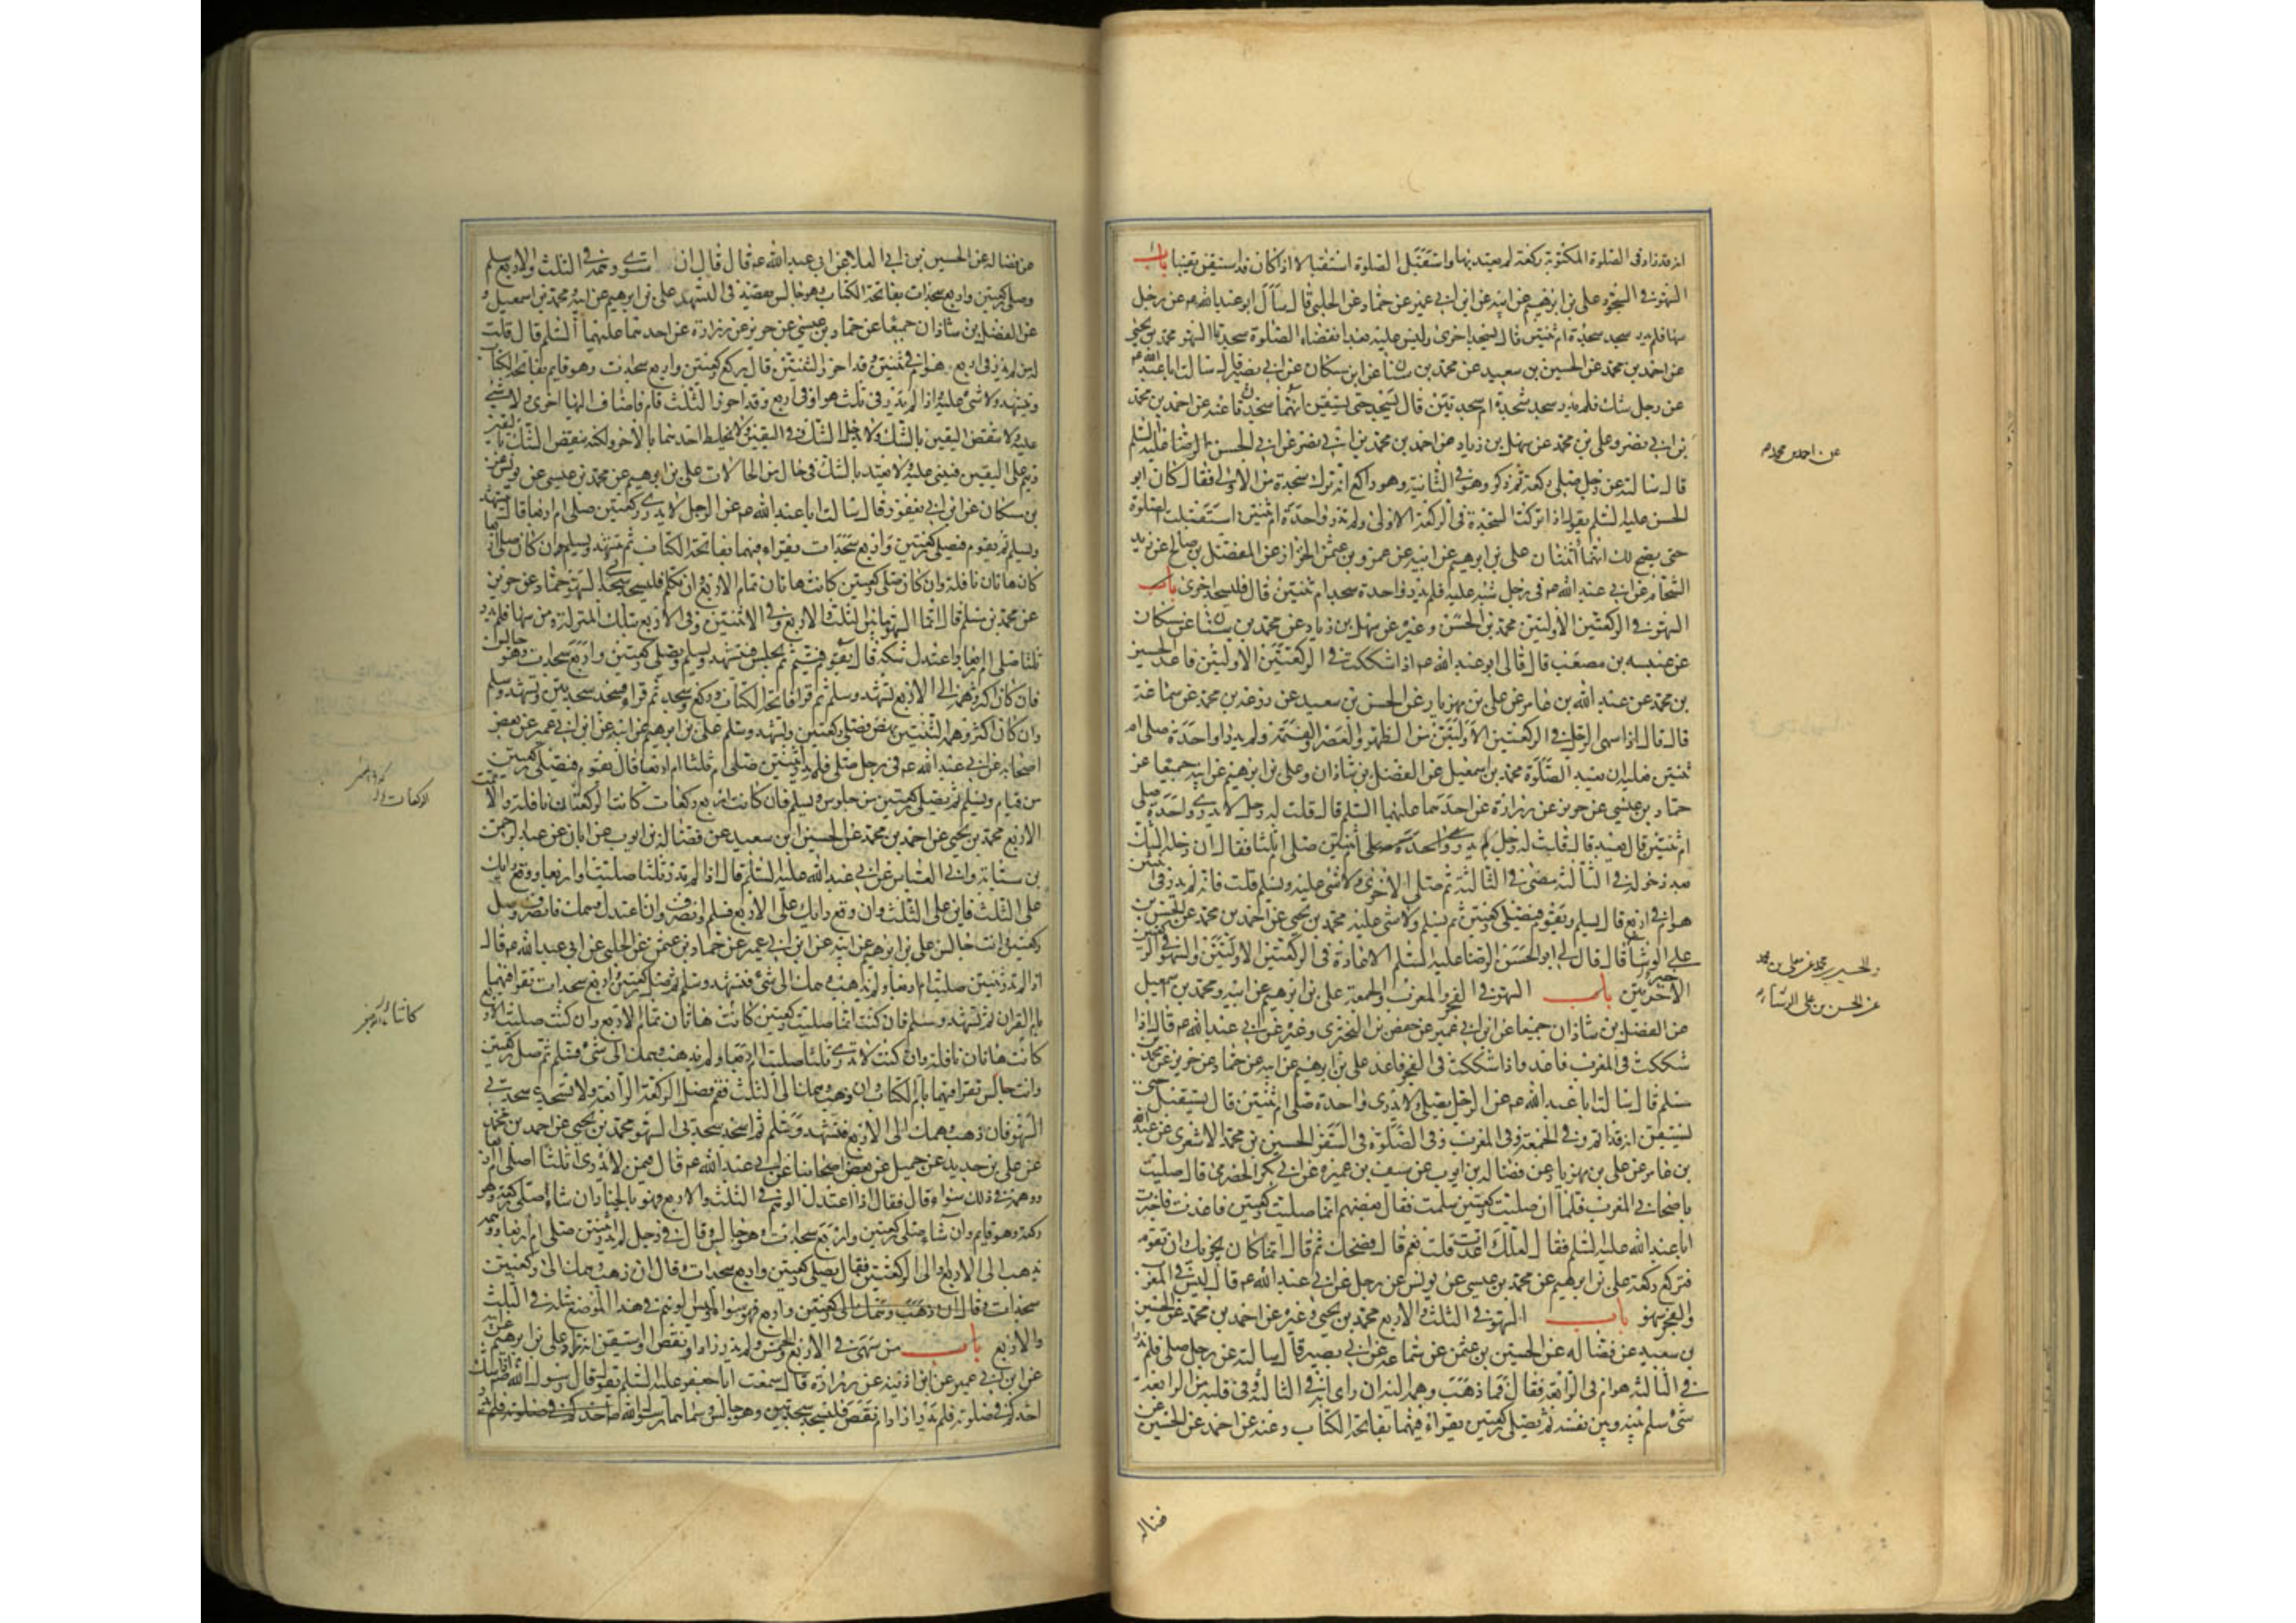 انه قد زاد فى الصلوة المكتوبة ركعة لم يعتد بها واستقبل الصلوة استقبالا اذا كان قد استيقن يقينا باب
السهو فى السجود على بن ابرهيم عن ابيه عن ابن ابى عمير عن حماد عن الحلبى قال سأل ابو عبد الله ع عن رجل
سها فلم يدر سجد سجدة ام ثنتين قال يسجد اخرى وليس عليه بعد انقضاء الصلوة سجدتا السهو محمد بن يحيى
عن احمد بن محمد عن الحسين بن سعيد عن محمد بن سنان عن ابن مسكان عن ابى بصير قال سالت ابا عبد الله ع
عن رجل شك فلم يدر سجد سجدة ام سجدتين قال يسجد حتى يستيقن انهما سجدتان عنه عن احمد بن محمد
بن ابى نصر وعلى بن محمد عن سهل بن زياد عن احمد بن محمد بن ابى نصر عن ابى الحسن الرضا عليه السلم
قال سالته عن رجل صلى ركعة ثم ذكر وهو فى الثانية وهو راكع انه ترك سجدة من الاولى فقال كان ابو
الحسن عليه السلم يقول اذا تركت السجدة فى الركعة الاولى ولم تدر واحدة ام ثنتين استقبلت الصلوة
حتى يصح لك انهما اثنتان على بن ابرهيم عن ابيه عن عمرو بن عثمن الخزاز عن المفضل بن صالح عن زيد
الشحام عن ابى عبد الله ع فى رجل شبه عليه فلم يدر واحدة سجد ام ثنتين قال فليسجد اخرى باب
السهو فى الركعتين الاوليتين محمد بن الحسن وغيره عن سهل بن زياد عن محمد بن سنان عن ابن مسكان
عن عنبسه بن مصعب قال قال لى ابو عبد الله ع اذا شككت فى الركعتين الاوليتين فاعد الحسين
بن محمد عن عبد الله بن عامر عن على بن مهزيار عن الحسين بن سعيد عن زرعة بن محمد عن سماعة
قال قال اذا سهى الرجل فى الركعتين الاوليتين من الظهر والعصر والعتمة ولم يدر اواحدة صلى ام
ثنتين فعليه ان يعيد الصلوة محمد بن اسمعيل عن الفضل بن شاذان وعلى بن ابرهيم عن ابيه جميعا عن
حماد بن عيسى عن حريز عن زرارة عن احدهما عليهما السلم قال قلت له رجل لا يدرى واحدة صلى
ام ثنتين قال يعيد قال قلت له رجل لم يدر واحدة صلى ام ثنتين صلى ام ثلثا فقال ان دخله الشك
بعد دخوله فى الثالثة مضى فى الثالثة ثم صلى الاخرى ولا شى عليه ويسلم قلت فانه لم يدر فى ثنتين
هو ام فى اربع قال يسلم ويقوم فيصلى ركعتين ثم يسلم ولا شى عليه محمد بن يحيى عن احمد بن محمد عن الحسن بن
على الوشا قال قال لى ابو الحسن الرضا عليه السلم الاعادة فى الركعتين الاوليتين والسهو فى الركعتين
الاخيرتين باب السهو فى الفجر والمغرب والجمعة على بن ابرهيم عن ابيه ومحمد بن اسمعيل
عن الفضل بن شاذان جميعا عن ابن ابى عمير عن حفص بن البخترى وغيره عن ابى عبد الله ع قال اذا
شككت فى المغرب فاعد واذا شككت فى الفجر فاعد على بن ابرهيم عن ابيه عن حماد عن حريز عن محمد بن
مسلم قال سالت ابا عبد الله ع عن الرجل يصلى ولا يدرى واحدة صلى ام ثنتين قال يستقبل حتى
يستيقن انه قد اتم وفى الجمعة وفى المغرب وفى الصلوة فى السفر الحسين بن محمد الاشعرى عن عبد الله
بن عامر عن على بن مهزيار عن فضالة بن ايوب عن سيف بن عميرة عن ابى بكر الحضرمى قال صليت
باصحابى المغرب فلما ان صليت ركعتين سلمت فقال بعضهم انما صليت ركعتين فاعدت فاخبرت
ابا عبد الله عليه السلم فقال لعلك اعدت قلت نعم قال فضحك ثم قال انما كان يجزيك ان تقوم
فتركع ركعة على بن ابرهيم عن محمد بن عيسى عن يونس عن رجل عن ابى عبد الله ع قال ليس فى المغرب
والفجر سهو باب السهو فى الثلث والاربع محمد بن يحيى وغيره عن احمد بن محمد عن الحسين
بن سعيد عن فضاله عن الحسين بن عثمن عن سماعه عن ابى بصير قال سالته عن رجل صلى فلم يدر
فى الثالثة هو ام فى الرابعة فقال فما ذهب وهمه اليه ان راى انه فى الثالثة وفى قلبه من الرابعة
شى سلم بينه وبين نفسه ثم يصلى ركعتين يقراء فيهما بفاتحة الكتاب وعنه عن احمد عن الحسين عن
فضاله
عن احمد بن محمد
والحسين بن محمد عن معلى بن محمد
عن الحسن بن على الوشاء
عن فضاله عن الحسين بن ابى العلا عن ابى عبد الله ع قال قال ان استوى وهمه فى الثلث والاربع سلم
وصلى ركعتين واربع سجدات بفاتحة الكتاب وهو جالس يقصد فى التشهد على بن ابرهيم عن ابيه ومحمد بن اسمعيل
عن الفضل بن شاذان جميعا عن حماد بن عيسى عن حريز عن زرارة عن احدهما عليهما السلم قال قلت
له من لم يدر فى اربع هو ام فى ثنتين وقد احرز الثنتين قال يركع ركعتين واربع سجدات وهو قايم بفاتحة الكتاب
ويتشهد ولا شى عليه واذا لم يدر فى ثلث هو او فى اربع وقد احرز الثلث قام فاضاف اليها اخرى ولا شى
عليه ولا ينقض اليقين بالشك ولا يدخل الشك فى اليقين ولا يخلط احدهما بالاخر ولكنه ينقض الشك باليقين
ويتم على اليقين فيبنى عليه ولا يعتد بالشك فى حال من الحالات على بن ابرهيم عن محمد بن عيسى عن يونس عن
بن مسكان عن ابن ابى يعفور قال سالت ابا عبد الله ع عن الرجل لا يدرى ركعتين صلى ام اربعا قال يتشهد
ويسلم ثم يقوم فيصلى ركعتين واربع سجدات يقراء فيهما بفاتحة الكتاب ثم يتشهد ويسلم وان كان صلى اربعا
كان هاتان نافلة وان كان صلى ركعتين كانت هاتان تمام الاربع وان تكلم فليسجد سجدتى السهو حماد عن حريز
عن محمد بن مسلم قال انما السهو ما بين الثلث والاربع وفى الاثنتين وفى الاربع بتلك المنزلة ومن سها فلم يدر
ثلثا صلى ام اربعا واعتدل شكه قال يقوم فيتم ثم يجلس فيتشهد ويسلم ويصلى ركعتين واربع سجدات وهو جالس
فان كان اكثر وهمه الى الاربع تشهد وسلم ثم قرا فاتحة الكتاب وركع وسجد ثم قراء وسجد سجدتين وتشهد وسلم
وان كان اكثر وهمه الثنتين نهض فصلى ركعتين وتشهد وسلم على بن ابرهيم عن ابيه عن ابن ابى عمير عن بعض
اصحابه عن ابى عبد الله ع فى رجل صلى فلم يدر اثنتين صلى ام ثلثا ام اربعا قال يقوم فيصلى ركعتين
من قيام ويسلم ثم يصلى ركعتين من جلوس ويسلم فان كانت اربع ركعات كانت الركعتان نافلة والا تمت
الاربع محمد بن يحيى عن احمد بن محمد عن الحسين بن سعيد عن فضالة بن ايوب عن ابان عن عبد الرحمن
بن سيابة وابى العباس عن ابى عبد الله عليه السلم قال اذا لم تدر ثلثا صليت او اربعا ووقع رايك
على الثلث فابن على الثلث وان وقع رايك على الاربع فسلم وانصرف وان اعتدل وهمك فانصرف وصل
ركعتين وانت جالس على بن ابرهيم عن ابيه عن ابن ابى عمير عن حماد بن عثمن عن الحلبى عن ابى عبد الله ع قال
اذا لم تدر ثنتين صليت ام اربعا ولم يذهب وهمك الى شى فتشهد وسلم ثم صل ركعتين واربع سجدات تقرا فيهما
بام القران ثم تشهد وسلم فان كنت انما صليت ركعتين كانت هاتان تمام الاربع وان كنت صليت الاربع
كانت هاتان نافلة وان كنت لا تدرى ثلثا صليت ام اربعا ولم يذهب وهمك الى شى فسلم ثم صل ركعتين
وانت جالس تقرا فيهما بام الكتاب وان ذهب وهمك الى الثلث فقم فصل الركعة الرابعة ولا تسجد سجدتى
السهو فان ذهب وهمك الى الاربع فتشهد وسلم ثم اسجد سجدتى السهو محمد بن يحيى عن احمد بن محمد
عن على بن حديد عن جميل عن بعض اصحابنا عن ابى عبد الله ع قال فيمن لا يدرى اثلثا صلى ام اربعا
ووهمه فى ذلك سواء قال فقال اذا اعتدل الوهم فى الثلث والاربع فهو بالخيار ان شاء صلى ركعة وهو
قايم وان شاء صلى ركعتين واربع سجدات وهو جالس وقال فى رجل لم يدر اثنتين صلى ام اربعا ووهمه
يذهب الى الاربع والى الركعتين فقال يصلى ركعتين واربع سجدات وقال ان ذهب وهمك الى ركعتين
سجدات وقال ان ذهب وهمك الى ركعتين واربع فهو سواء وليس الوهم فى هذا الموضع مثله فى الثلث
والاربع باب من سهى فى الاربع والخمس ولم يدر زاد او نقص او استيقن انه زاد على بن ابرهيم عن ابيه
عن ابن ابى عمير عن ابن اذينة عن زرارة قال سمعت ابا جعفر عليه السلم يقول قال رسول الله ص اذا شك
احدكم فى صلوته فلم يدر ازاد ام نقص فليسجد سجدتين وهو جالس وسماهما رسول الله